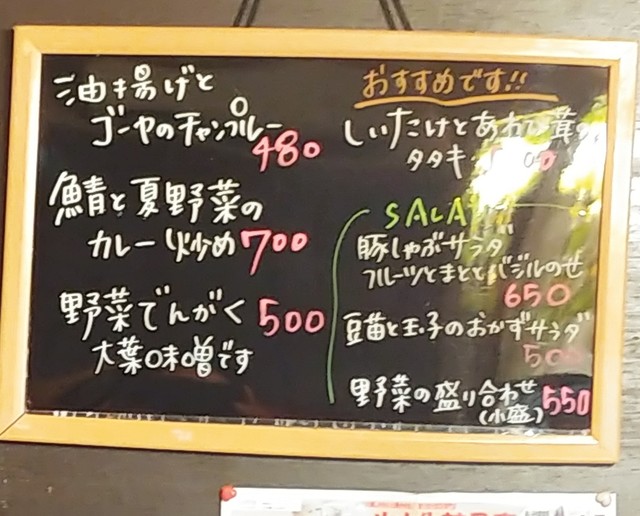 油揚げと
ゴーヤのチャンプルー
480
鯖と夏野菜の
カレー炒め 700
野菜でんがく 500
大葉味噌です
おすすめです!!
しいたけとあわび茸の
タタキ
SALA
豚しゃぶサラダ
フルーツとまととバジルのせ
650
豆苗と玉子のおかずサラダ
500
野菜の盛り合わせ 550
(小盛)